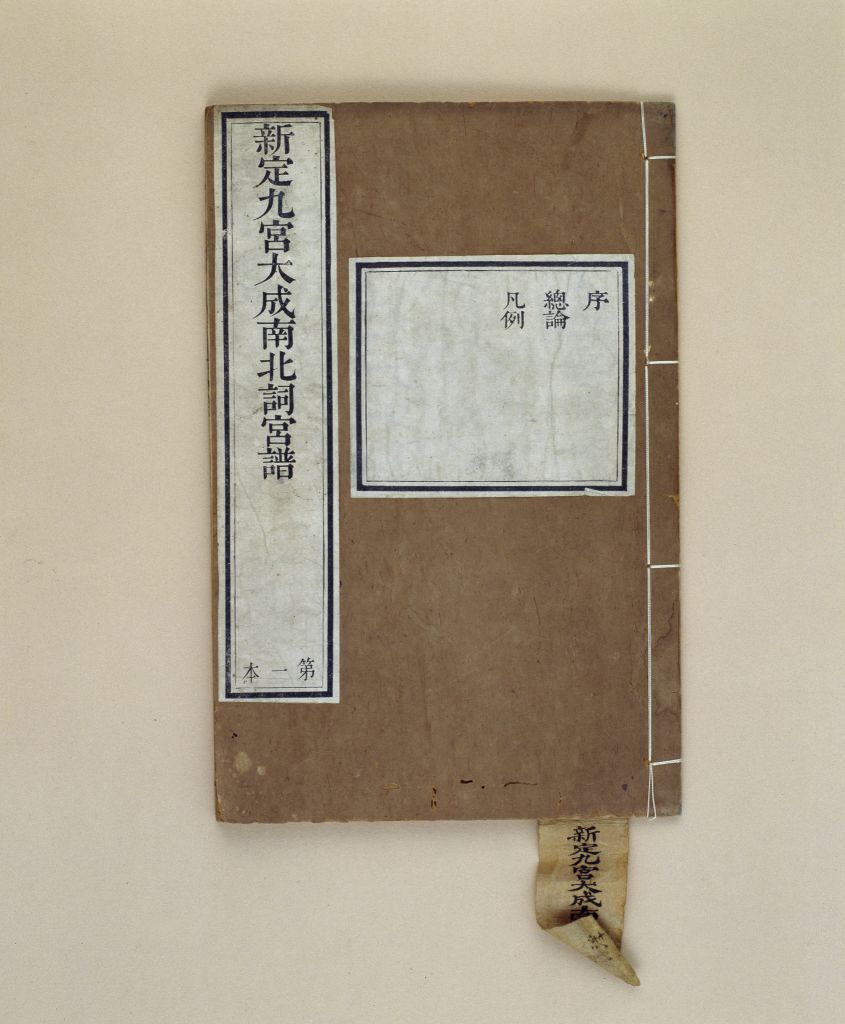 新定九宮大成南北詞宮譜
第一本
序
總論
凡例
新定九宮大成南